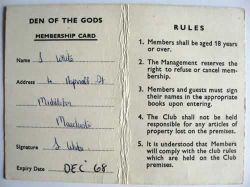 DEN OF THE GODS
MEMBERSHIP CARD
Name J White
Address
Middleton
Manchester
Signature J White
Expiry Date DEC' 68
RULES
1. Members shall be aged 18 years
or over.
2. The Management reserves the
right to refuse or cancel mem-
bership.
3. Members and guests must sign
their names in the appropriate
books upon entering.
4. The Club shall not be held
responsible for any articles of
property lost on the premises.
5. It is understood that Members
will comply with the club rules
which are held on the Club
premises.